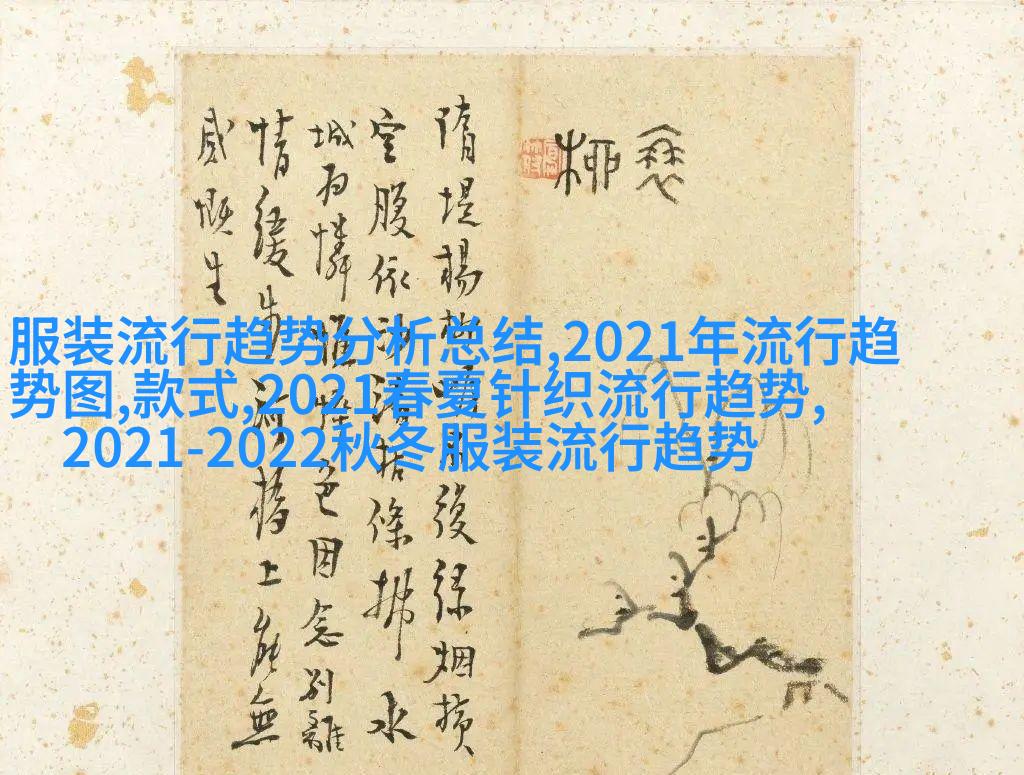 衰柳
隋堤楊柳後緑烟
空腹依沙渚枯條拂水
城憐色因念別離
情緩步橋上能無
感慨生
服装流行趋势分析总结,2021年流行趋
势图,款式,2021春夏针织流行趋势,
2021-2022秋冬服装流行趋势